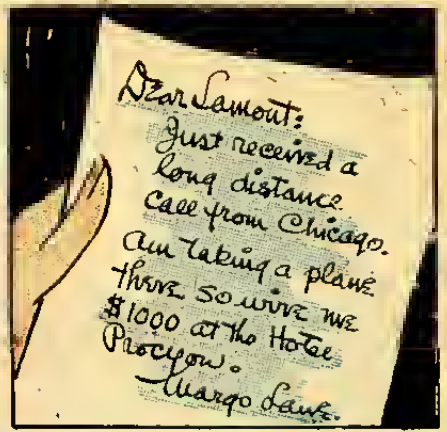 Dear Lamont:
Just received a
long distance
call from Chicago.
Am taking a plane
there so wire me
$1000 at the Hotel
Procyon.
Margo Lane.